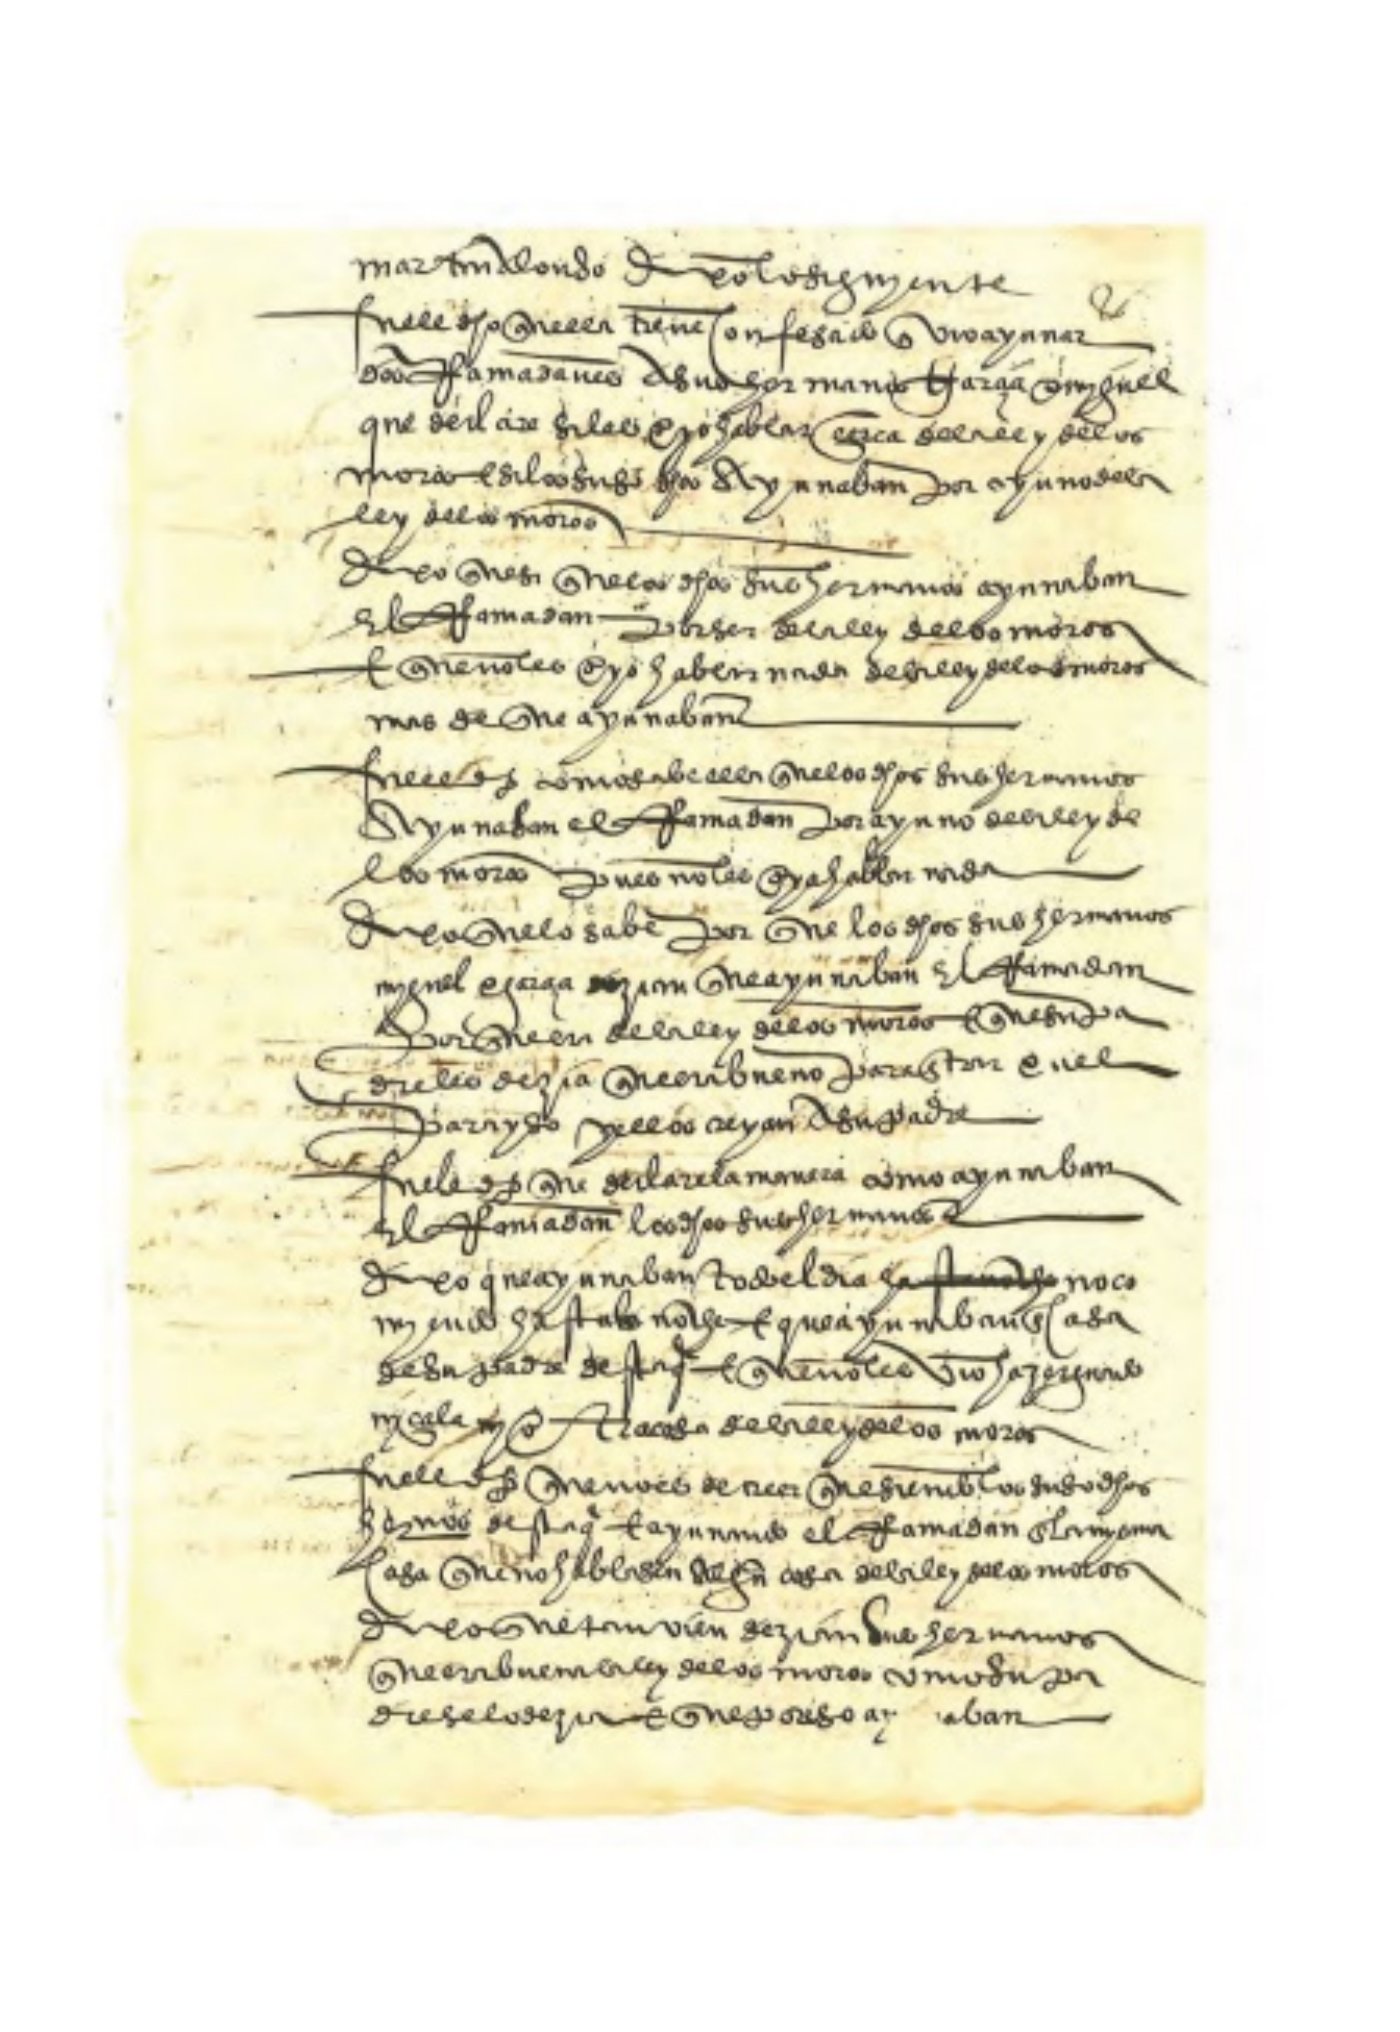 martin alonso dixo lo siguyente
fuele dho que ella tiene confesado q vio ayunar
dos Ramadanes a sus hermanos garçia e miguel
que declare si les oyo hablar çerca de la ley de los
moros e si los suso dhos ayunaban por ayuno de la
ley de los moros
dixo que si que los dhos sus hermanos ayunaban
el Ramadan por ser de la ley de los moros
e que no les oyo hablar nada de la ley de los moros
mas de que ayunaban
fuele dho como sabe ella que los dhos sus hermanos
ayunaban el Ramadan por ayuno de la ley de
los moros pues no les oya hablar nada
dixo que lo sabe por que los dhos sus hermanos
miguel e garçia dezian que ayunaban el Ramadan
por que era de la ley de los moros e que su pa
dre les dezia que era bueno para entrar en el
parayso y ellos creyan a su padre
fuele dho que declare la manera como ayunaban
el Ramadan los dhos sus hermanos
dixo que ayunaban todo el dia hasta noche no co
miendo hasta la noche e que ayunaban en casa
de su padre deste q e que no les vio hazer guado
ni çala ni otra cosa de la ley de los moros
fuele dho que no es de creer que siendo los suso dhos
hermos desta q e ayunando el Ramadan en la mysma
casa que no hablasen algun cosa de la ley de los moros
dixo que tan vien dezian sus hermanos
que era buena la ley de los moros como su pa
dre se lo dezia e que por eso ay aban